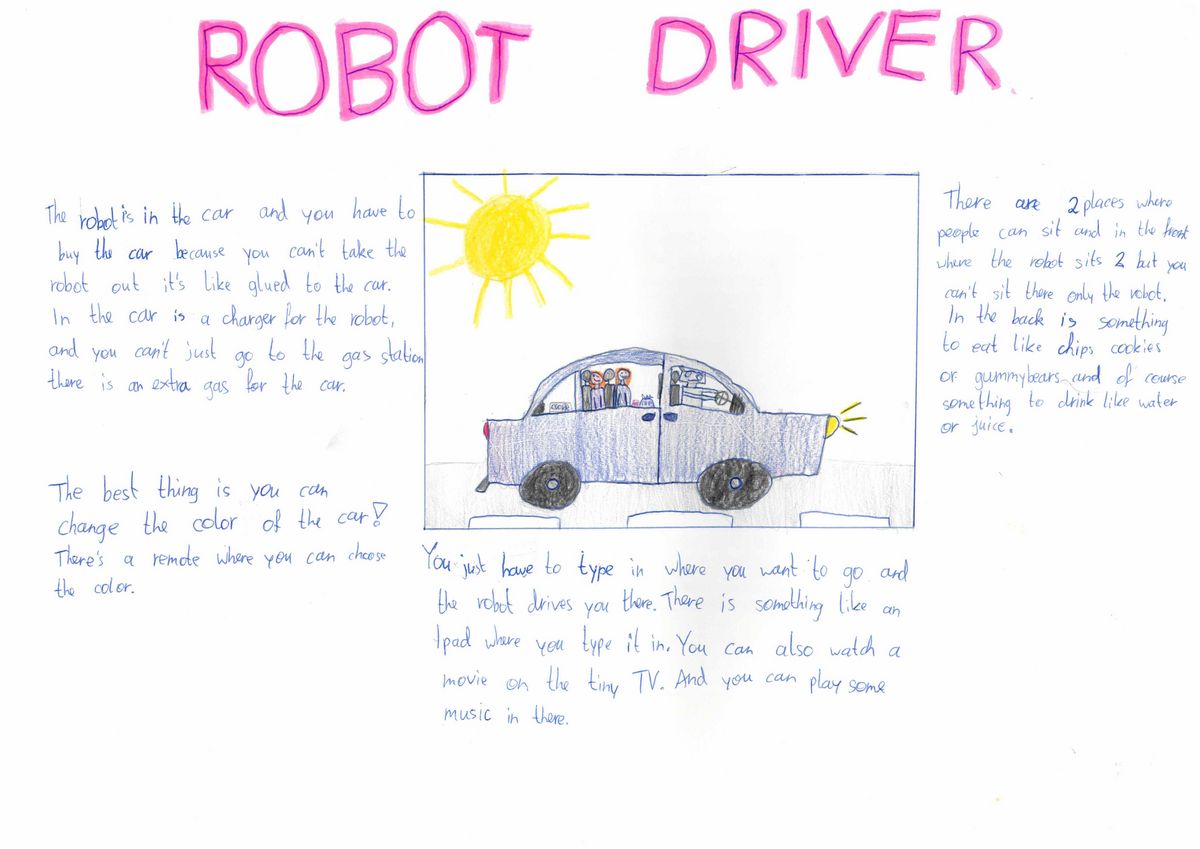 ROBOT DRIVER.
The robot is in the car and you have to
buy the car because you can't take the
robot out it's like glued to the car.
In the car is a charger for the robot,
and you can't just go to the gas station
there is an extra gas for the car.
The best thing is you can
change the color of the car!
There's a remote where you can choose
the color.
You just have to type in where you want to go and
the robot drives you there. There is something like an
Ipad where you type it in. You can also watch a
movie on the tiny TV. And you can play some
music in there.
There are 2 places where
people can sit and in the front
where the robot sits 2 but you
can't sit there only the robot.
In the back is something
to eat like chips cookies
or gummybears and of course
something to drink like water
or juice.